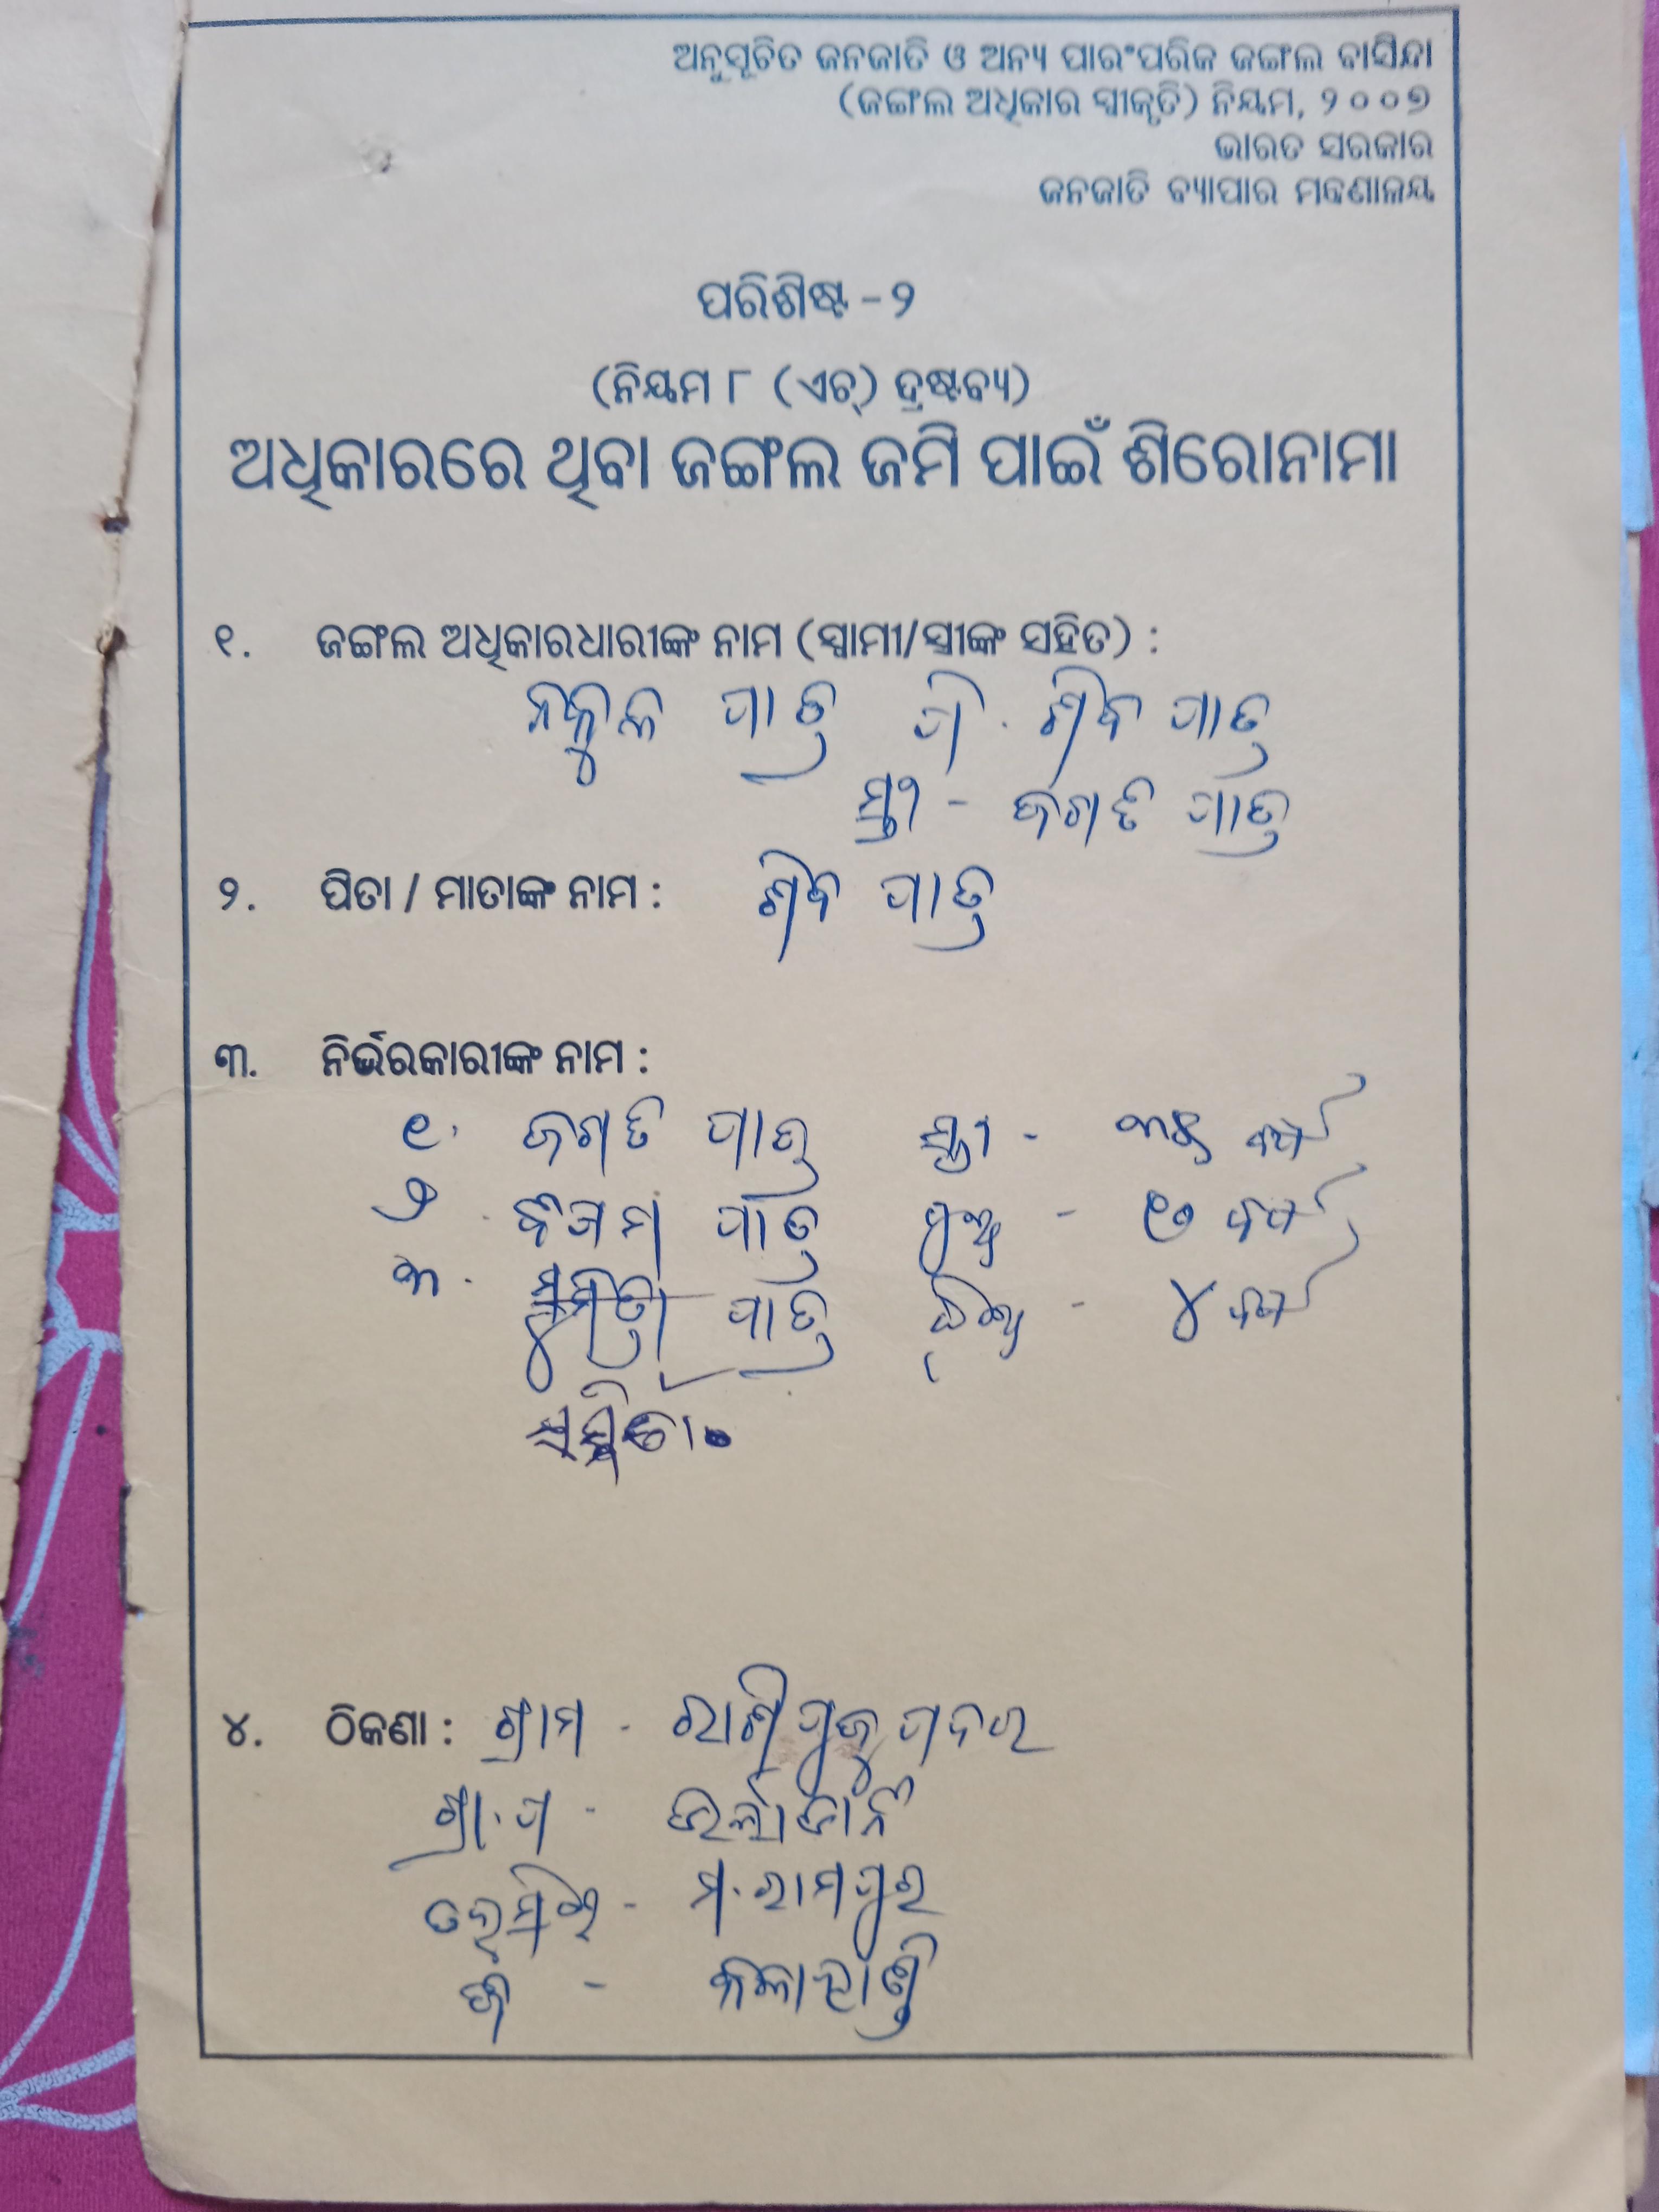 ଅନୁସୂଚିତ ଜନଜାତି ଓ ଅନ୍ୟ ପାରଂପରିକ ଜଙ୍ଗଲ ବାସିନ୍ଦା
(ଜଙ୍ଗଲ ଅଧିକାର ସ୍ୱୀକୃତି) ନିୟମ, ୨୦୦୭
ଭାରତ ସରକାର
ଜନଜାତି ବ୍ୟାପାର ମନ୍ତ୍ରଣାଳୟ
ପରିଶିଷ୍ଟ - ୨
(ନିୟମ ୮ (ଏଚ୍) ଦ୍ରଷ୍ଟବ୍ୟ)
ଅଧିକାରରେ ଥିବା ଜଙ୍ଗଲ ଜମି ପାଇଁ ଶିରୋନାମା
୧. ଜଙ୍ଗଲ ଅଧିକାରଧାରୀଙ୍କ ନାମ (ସ୍ୱାମୀ/ସ୍ତ୍ରୀଙ୍କ ସହିତ) :
ନକୁଳ ପାତ୍ର ପି. ଶିବ ପାତ୍ର
ସ୍ତ୍ରୀ - ଜଗତି ପାତ୍ର
୨. ପିତା / ମାତାଙ୍କ ନାମ : ଶିବ ପାତ୍ର
୩. ନିର୍ଭରକାରୀଙ୍କ ନାମ :
୧. ଜଗତି ପାତ୍ର ସ୍ତ୍ରୀ - ବର୍ଷ
୨. ପାତ୍ର ପୁଅ - ୧୦ ବର୍ଷ
୩. ସୁମିତ୍ରା ପାତ୍ର ଝିଅ - ୪ ବର୍ଷ
୪. ଠିକଣା : ଗ୍ରାମ -
ଗ୍ରା.ପ -
ତହସିଲ - ମ.ରାମପୁର
ଜି - କଳାହାଣ୍ଡି